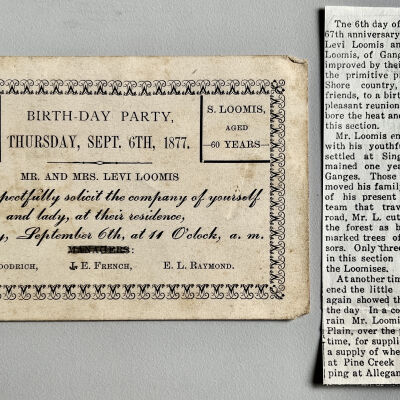 BIRTH-DAY PARTY,
THURSDAY, SEPT. 6TH, 1877.
S. LOOMIS,
AGED
—60 YEARS—
MR. AND MRS. LEVI LOOMIS
spectfully solicit the company of yourself
and lady, at their residence,
September 6th, at 11 O'clock, a. m.
MANAGERS:
OODRICH, J. E. FRENCH, E. L. RAYMOND.
The 6th day of
67th anniversary
Levi Loomis an
Loomis, of Gang
improved by thei
the primitive pi
Shore country,
friends, to a birt
pleasant reunion
bore the heat and
this section.
Mr. Loomis en
with his youthf
settled at Sing
mained one yea
Ganges. Those
moved his family
of his present
team that trav
road, Mr. L. cut
the forest as b
marked trees of
sors. Only three
in this section
the Loomises.
At another tim
ened the little
again showed th
the day In a co
rain Mr. Loomi
Plain, over the p
time, for suppli
a supply of whe
at Pine Creek
ping at Allegan